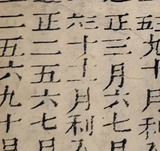 五九十月利
正三月六七月
六十十月利
正二五六七
二五六九十月